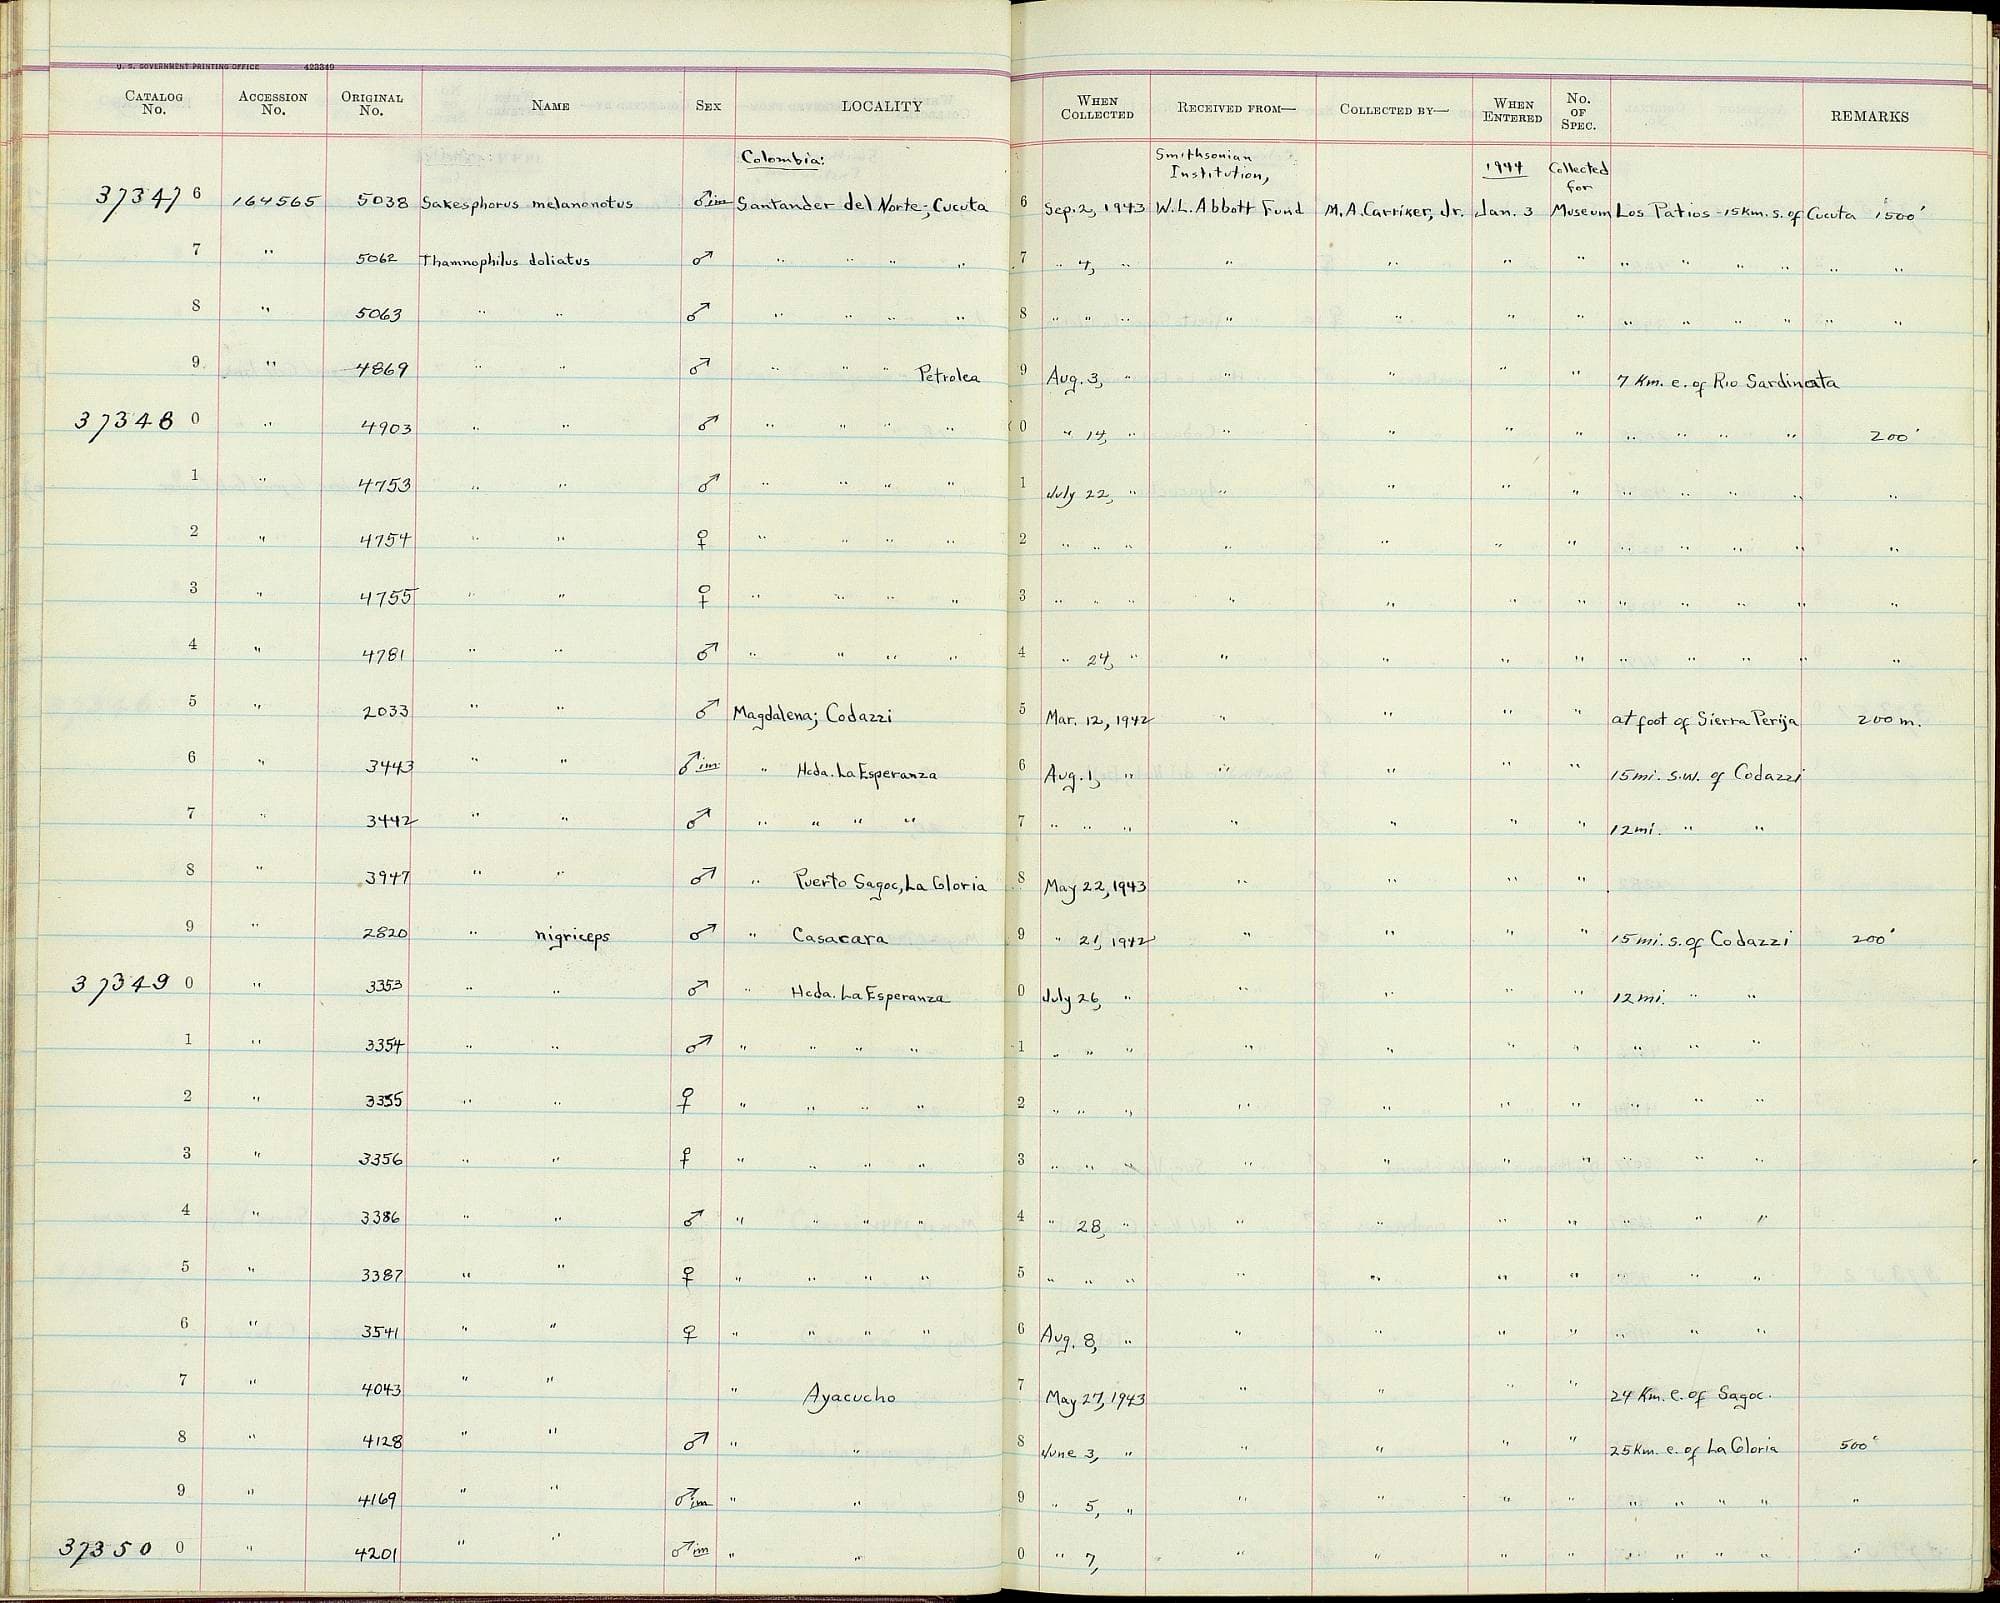 U. S. GOVERNMENT PRINTING OFFICE 423349
CATALOG No. ACCESSION No. ORIGINAL No. NAME SEX LOCALITY WHEN COLLECTED RECEIVED FROM— COLLECTED BY— WHEN ENTERED No. OF SPEC. REMARKS
Colombia: Smithsonian Institution, 1944 Collected for
37347 6 164565 5038 Sakesphorus melanonotus ♂im Santander del Norte; Cucuta 6 Sep. 2, 1943 W. L. Abbott Fund M. A. Carriker, Jr. Jan. 3 Museum Los Patios - 15 Km. s. of Cucuta 1500'
7 " 5062 Thamnophilus doliatus ♂ " " " " 7 " 4, " " " " " " " " " " "
8 " 5063 " " ♂ " " " " 8 " " " " " " " " " " " " "
9 " 4869 " " ♂ " " " Petrolea 9 Aug. 3, " " " " " 7 Km. e. of Rio Sardinata
37348 0 " 4903 " " ♂ " " " " 0 " 14, " " " " " " " " " 200'
1 " 4753 " " ♂ " " " " 1 July 22, " " " " " " " " " "
2 " 4754 " " ♀ " " " " 2 " " " " " " " " " " " "
3 " 4755 " " ♀ " " " " 3 " " " " " " " " " " " "
4 " 4781 " " ♂ " " " " 4 " 24, " " " " " " " " " "
5 " 2033 " " ♂ Magdalena; Codazzi 5 Mar. 12, 1942 " " " " at foot of Sierra Perija 200 m.
6 " 3443 " " ♂im " Hcda. La Esperanza 6 Aug. 1, " " " " " 15 mi. s.w. of Codazzi
7 " 3442 " " ♂ " " " " 7 " " " " " " " 12 mi. " "
8 " 3947 " " ♂ " Puerto Sagoc, La Gloria 8 May 22, 1943 " " " "
9 " 2820 " nigriceps ♂ " Casacara 9 " 21, 1942 " " " " 15 mi. s. of Codazzi 200'
37349 0 " 3353 " " ♂ " Hcda. La Esperanza 0 July 26, " " " " " 12 mi. " "
1 " 3354 " " ♂ " " " " 1 " " " " " " " " " "
2 " 3355 " " ♀ " " " " 2 " " " " " " " " " "
3 " 3356 " " ♀ " " " " 3 " " " " " " " " " "
4 " 3386 " " ♂ " " " " 4 " 28, " " " " " " " "
5 " 3387 " " ♀ " " " " 5 " " " " " " " " " "
6 " 3541 " " ♀ " " " " 6 Aug. 8, " " " " " " " "
7 " 4043 " " " Ayacucho 7 May 27, 1943 " " " " 24 Km. e. of Sagoc.
8 " 4128 " " ♂ " " 8 June 3, " " " " " 25 Km. e. of La Gloria 500'
9 " 4169 " " ♂im " " 9 " 5, " " " " " " " " " "
37350 0 " 4201 " " ♂im " " 0 " 7, " " " " " " " " "